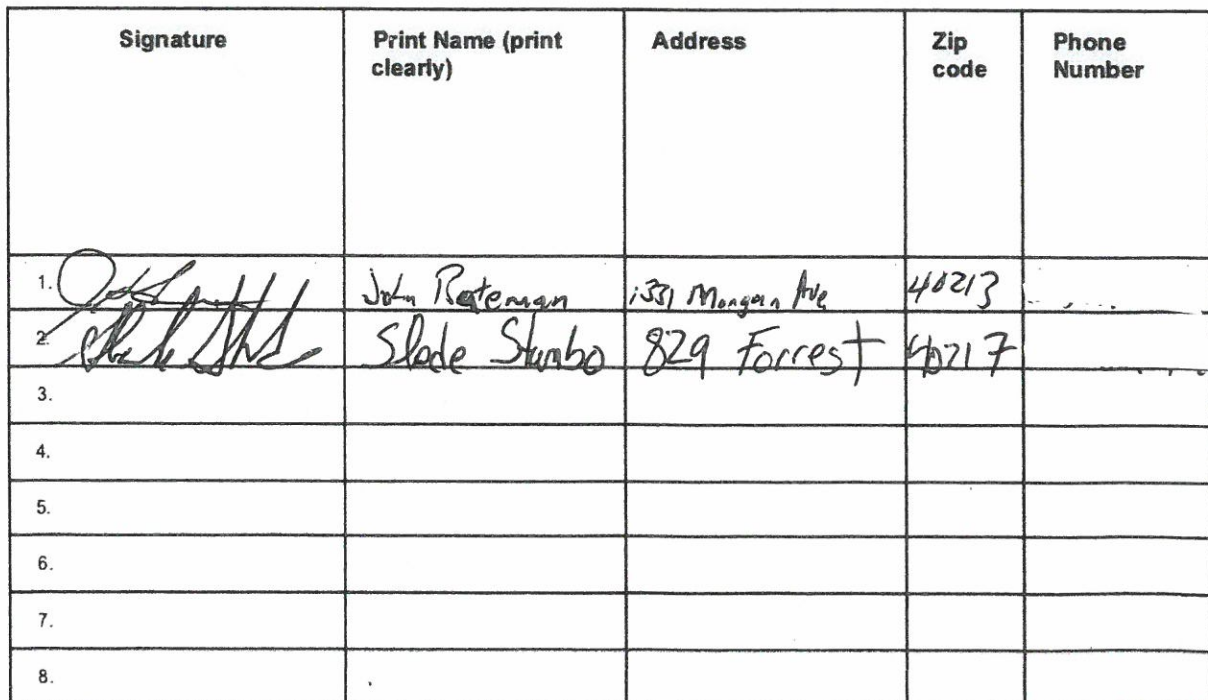 Signature Print Name (print clearly) Address Zip code Phone Number
1. John Bateman 1331 Morgan Ave 40213
2. Slade Stumbo 829 Forrest 40217
3.
4.
5.
6.
7.
8.